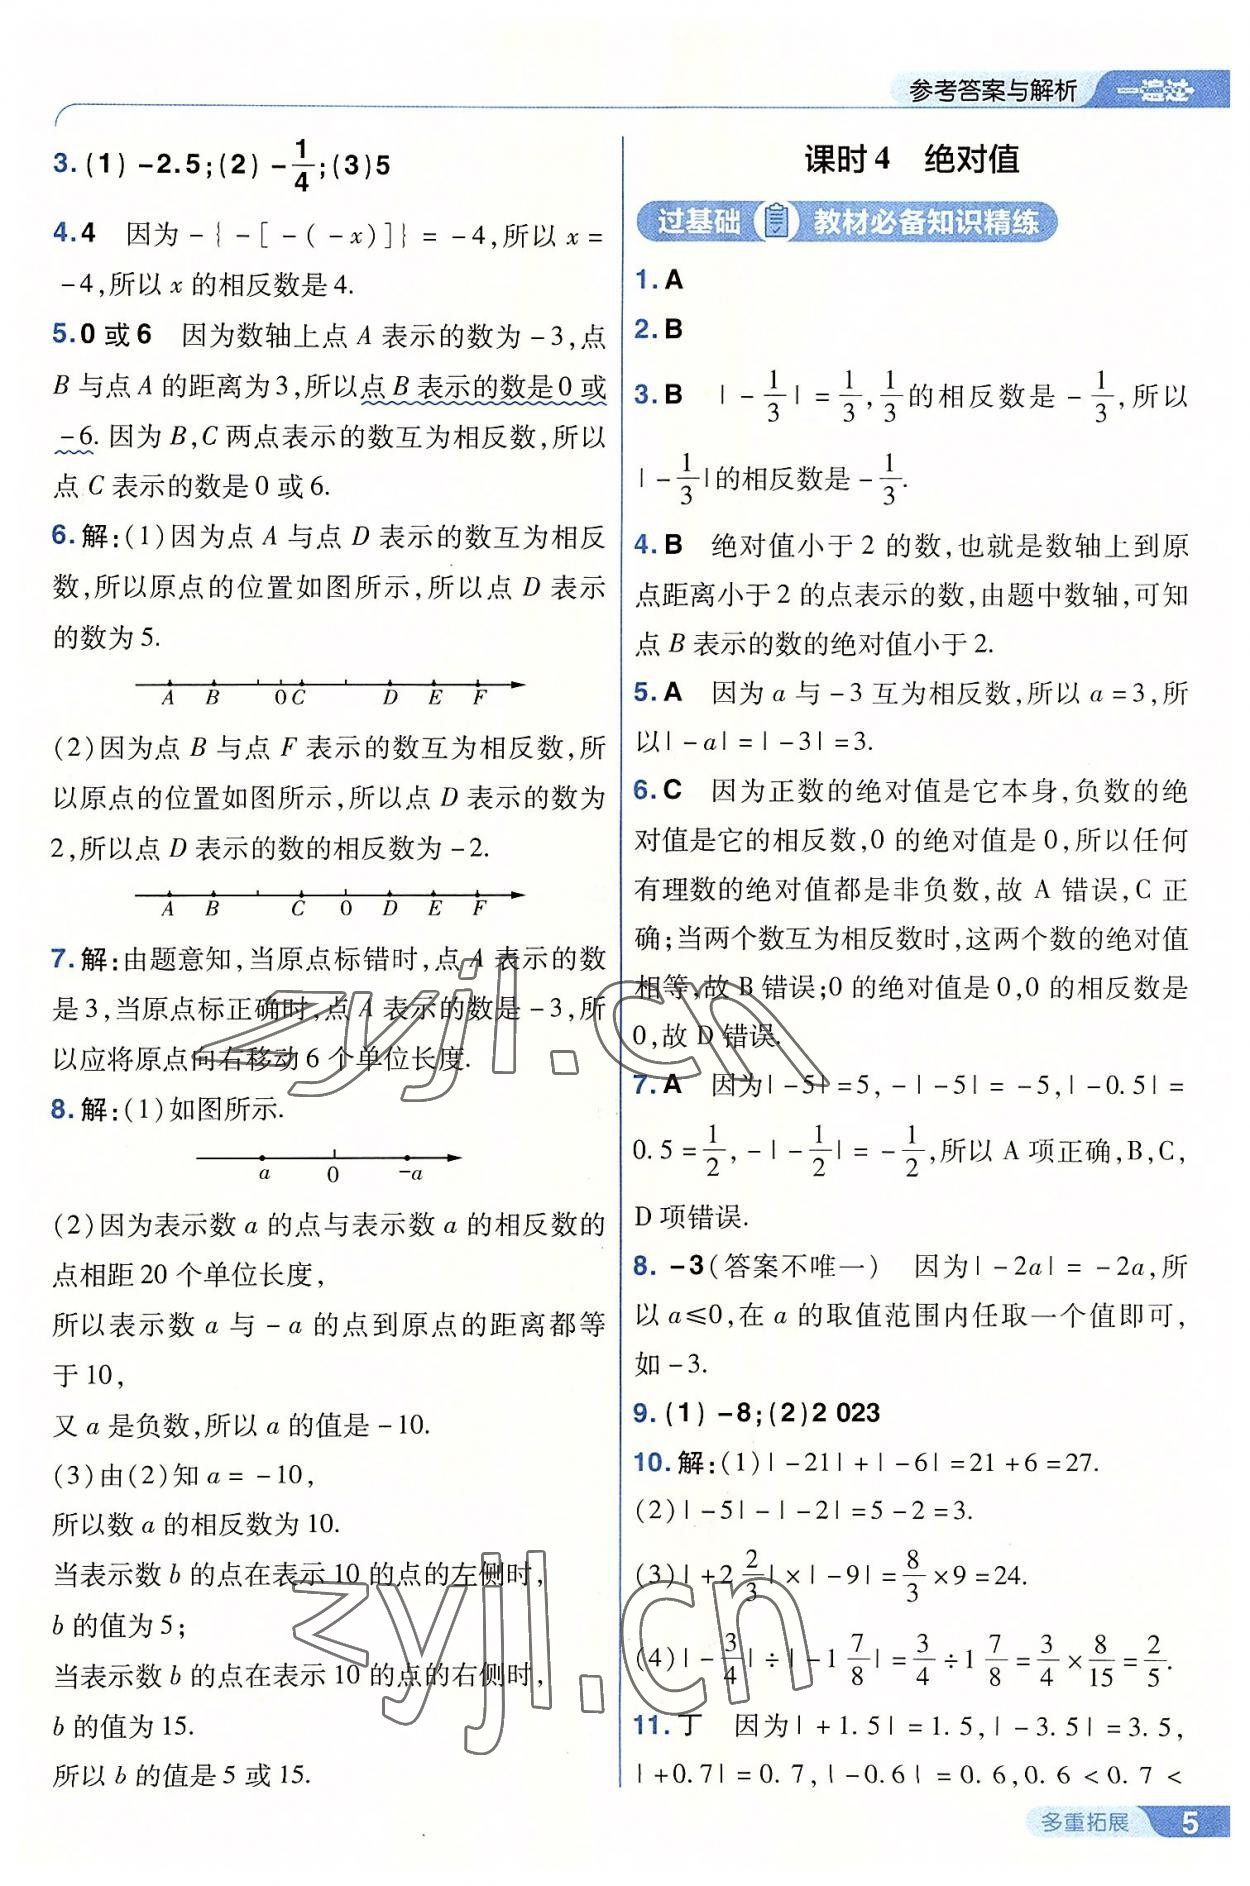 参考答案与解析 一遍过
3.(1)-2.5;(2)-1/4;(3)5
4.4 因为-{-[-(-x)]}=-4,所以x=
-4,所以x的相反数是4.
5.0或6 因为数轴上点A表示的数为-3,点
B与点A的距离为3,所以点B表示的数是0或
-6.因为B,C两点表示的数互为相反数,所以
点C表示的数是0或6.
6.解:(1)因为点A与点D表示的数互为相反
数,所以原点的位置如图所示,所以点D表示
的数为5.
A B 0 C D E F
(2)因为点B与点F表示的数互为相反数,所
以原点的位置如图所示,所以点D表示的数为
2,所以点D表示的数的相反数为-2.
A B C 0 D E F
7.解:由题意知,当原点标错时,点A表示的数
是3,当原点标正确时,点A表示的数是-3,所
以应将原点向右移动6个单位长度.
8.解:(1)如图所示.
a 0 -a
(2)因为表示数a的点与表示数a的相反数的
点相距20个单位长度,
所以表示数a与-a的点到原点的距离都等
于10,
又a是负数,所以a的值是-10.
(3)由(2)知a=-10,
所以数a的相反数为10.
当表示数b的点在表示10的点的左侧时,
b的值为5;
当表示数b的点在表示10的点的右侧时,
b的值为15.
所以b的值是5或15.
课时4 绝对值
过基础 教材必备知识精练
1.A
2.B
3.B |-1/3|=1/3,1/3的相反数是-1/3,所以
|-1/3|的相反数是-1/3.
4.B 绝对值小于2的数,也就是数轴上到原
点距离小于2的点表示的数,由题中数轴,可知
点B表示的数的绝对值小于2.
5.A 因为a与-3互为相反数,所以a=3,所
以|-a|=|-3|=3.
6.C 因为正数的绝对值是它本身,负数的绝
对值是它的相反数,0的绝对值是0,所以任何
有理数的绝对值都是非负数,故A错误,C正
确;当两个数互为相反数时,这两个数的绝对值
相等,故B错误;0的绝对值是0,0的相反数是
0,故D错误.
7.A 因为|-5|=5,-|-5|=-5,|-0.5|=
0.5=1/2,-|-1/2|=-1/2,所以A项正确,B,C,
D项错误.
8.-3(答案不唯一) 因为|-2a|=-2a,所
以a≤0,在a的取值范围内任取一个值即可,
如-3.
9.(1)-8;(2)2 023
10.解:(1)|-21|+|-6|=21+6=27.
(2)|-5|-|-2|=5-2=3.
(3)|+2 2/3|×|-9|=8/3×9=24.
(4)|-3/4|÷|-1 7/8|=3/4÷1 7/8=3/4×8/15=2/5.
11.丁 因为|+1.5|=1.5,|-3.5|=3.5,
|+0.7|=0.7,|-0.6|=0.6,0.6<0.7<
zyjl.cn
zyjl.cn
多重拓展 5